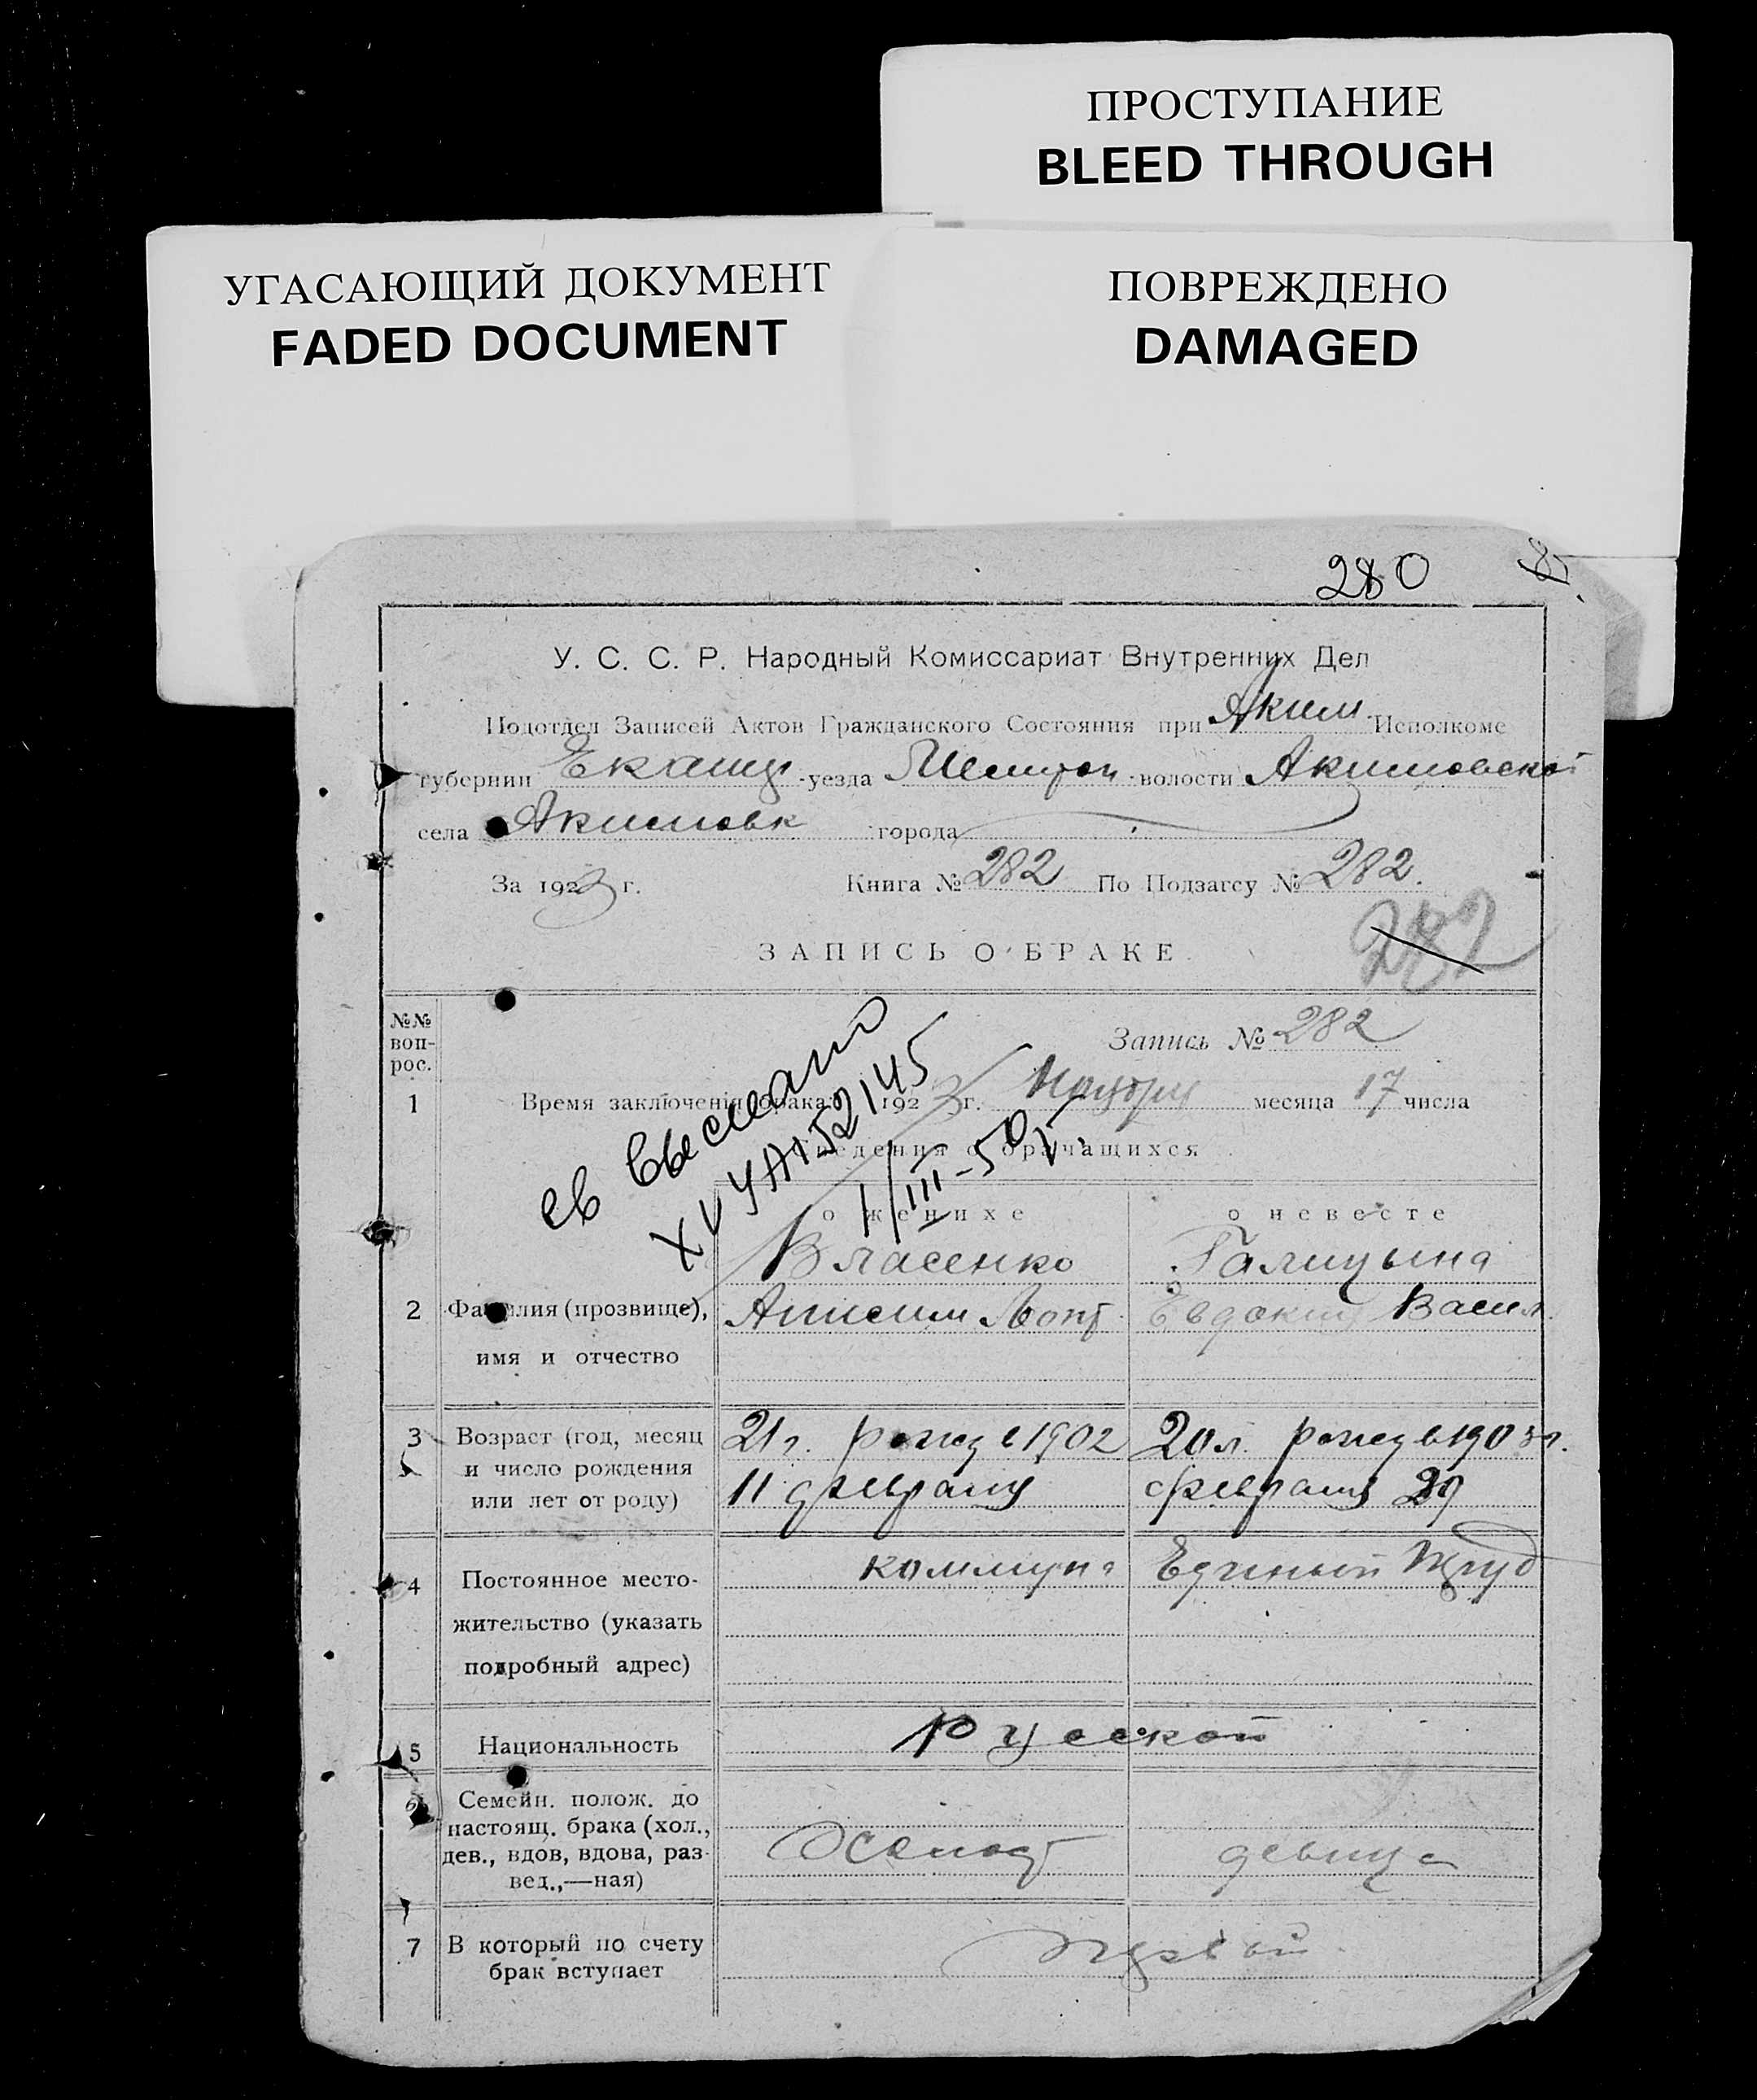 ПРОСТУПАНИЕ
BLEED THROUGH
УГАСАЮЩИЙ ДОКУМЕНТ
FADED DOCUMENT
ПОВРЕЖДЕНО
DAMAGED
280
У. С. С. Р. Народный Комиссариат Внутренних Дел
Подотдел Записей Актов Гражданского Состояния при Аким. Исполкоме
губернии Екат уезда Мелитоп волости Акимовской
села Акимовк города
За 1923 г. Книга № 282 По Подзагсу № 282.
282
ЗАПИСЬ О БРАКЕ.
№№ вопрос.
Запись № 282
1 Время заключенія брака: 1923 г. Ноября месяца 17 числа
св выслано
XV УА 152145
1/III-50г.
Сведения о брачащихся
о женихе о невесте
Власенко Галицына
2 Фамилия (прозвище), Анисим Евдокия Васил
имя и отчество
3 Возраст (год, месяц 21 г. рожд в 1902 20 л. рожд в 1903 г.
и число рождения 11 февраля февраля
или лет от роду)
коммуна Единый Труд
4 Постоянное место-
жительство (указать
подробный адрес)
5 Национальность Русской
6 Семейн. полож. до
настоящ. брака (хол.,
дев., вдов, вдова, раз- девица
вед.,—ная)
7 В который по счету первый
брак вступает